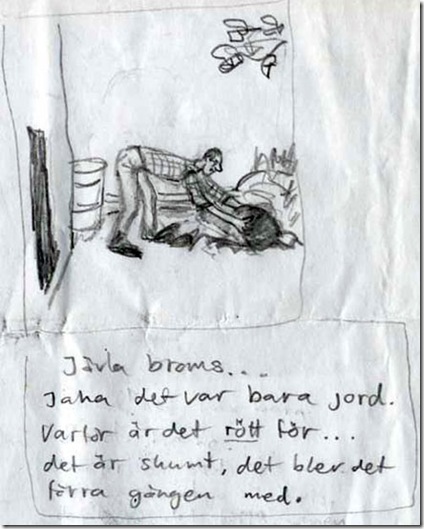 Jävla broms...
Jaha det var bara jord.
Varför är det rött för...
det är skumt, det blev det
förra gången med.